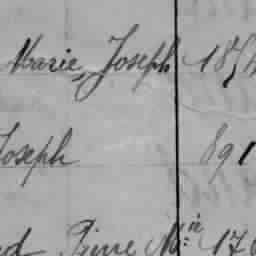 Marie, Joseph 185
Joseph 891
Pierre M.in 176